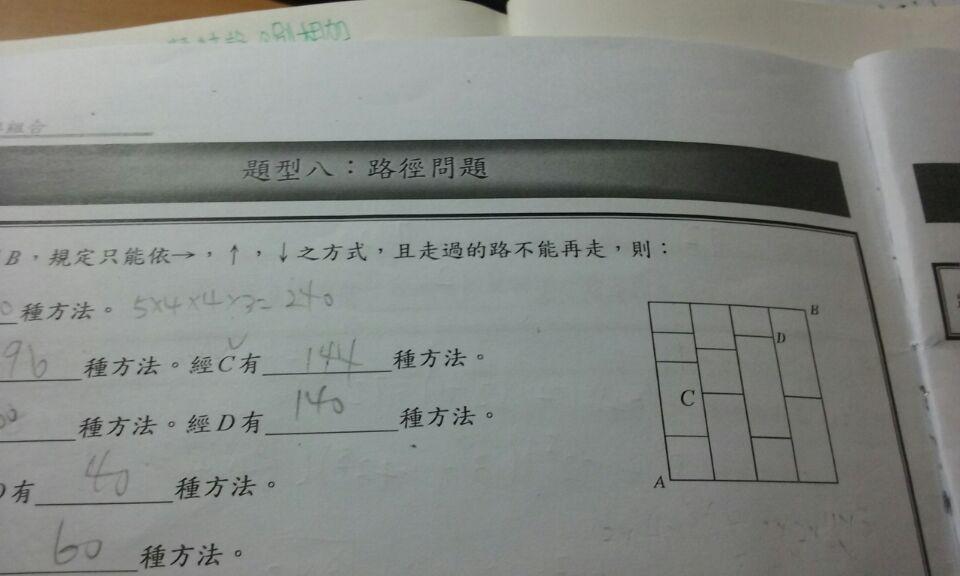 則相加
組合
題型八：路徑問題
B，規定只能依→，↑，↓之方式，且走過的路不能再走，則：
0種方法。5×4×4×3=240
96種方法。經C有144種方法。
種方法。經D有140種方法。
有40種方法。
60種方法。
B
D
C
A